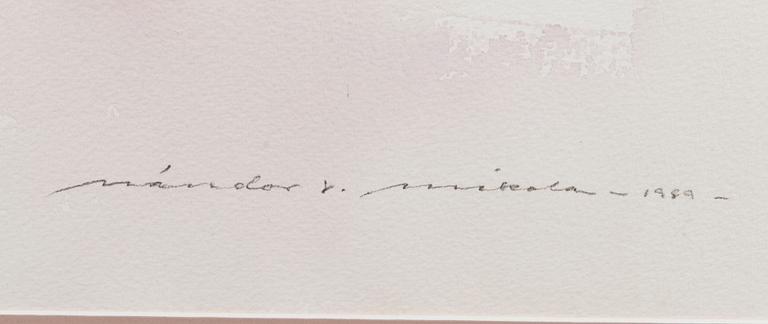 nándor v. mikola – 1989 –